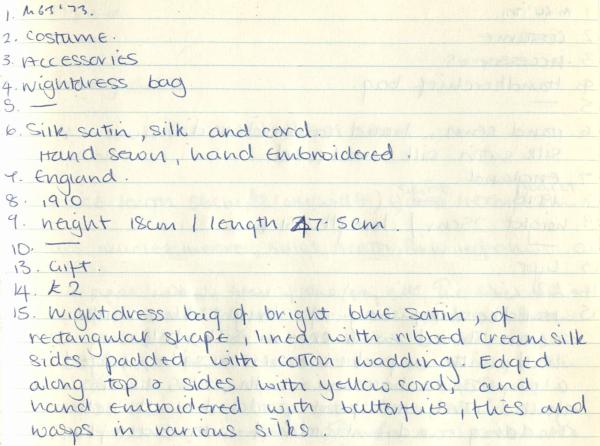 1. M61'73.
2. Costume.
3. Accessories
4. Nightdress bag
5. —
6. Silk satin, silk and cord.
Hand sewn, hand embroidered.
7. England.
8. 1910
9. height 18cm / length 47.5cm.
10. —
13. Gift.
14. K2
15. Nightdress bag of bright blue satin, of
rectangular shape, lined with ribbed cream silk
sides padded with cotton wadding. Edged
along top & sides with yellow cord, and
hand embroidered with butterflies, flies and
wasps in various silks.